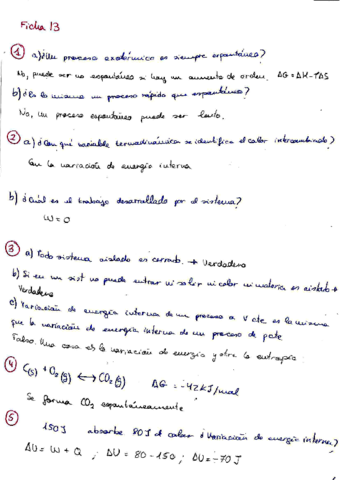 Ficha 13
① a) ¿Un proceso exotérmico es siempre espontáneo?
No, puede ser no espontáneo si hay un aumento de orden. ΔG = ΔH - TΔS
b) ¿Es lo mismo un proceso rápido que espontáneo?
No, un proceso espontáneo puede ser lento.
② a) ¿Con qué variable termodinámica se identifica el calor intercambiado?
Con la variación de energía interna
b) ¿Cuál es el trabajo desarrollado por el sistema?
W = 0
③ a) Todo sistema aislado es cerrado. → Verdadero
b) Si en un sist no puede entrar ni salir ni calor ni materia es aislado →
Verdadero
c) Variación de energía interna de un proceso a V cte es la misma
que la variación de energía interna de un proceso de p cte
Falso. Una cosa es la variación de energía y otra la entropía
④ C(s) + O₂(g) ⟷ CO₂(g) ΔG = -42 kJ/mol
Se forma CO₂ espontáneamente
⑤ 150J absorbe 80J d calor ¿Variación de energía interna?
ΔU = W + Q ; ΔU = 80 - 150 ; ΔU = -70 J